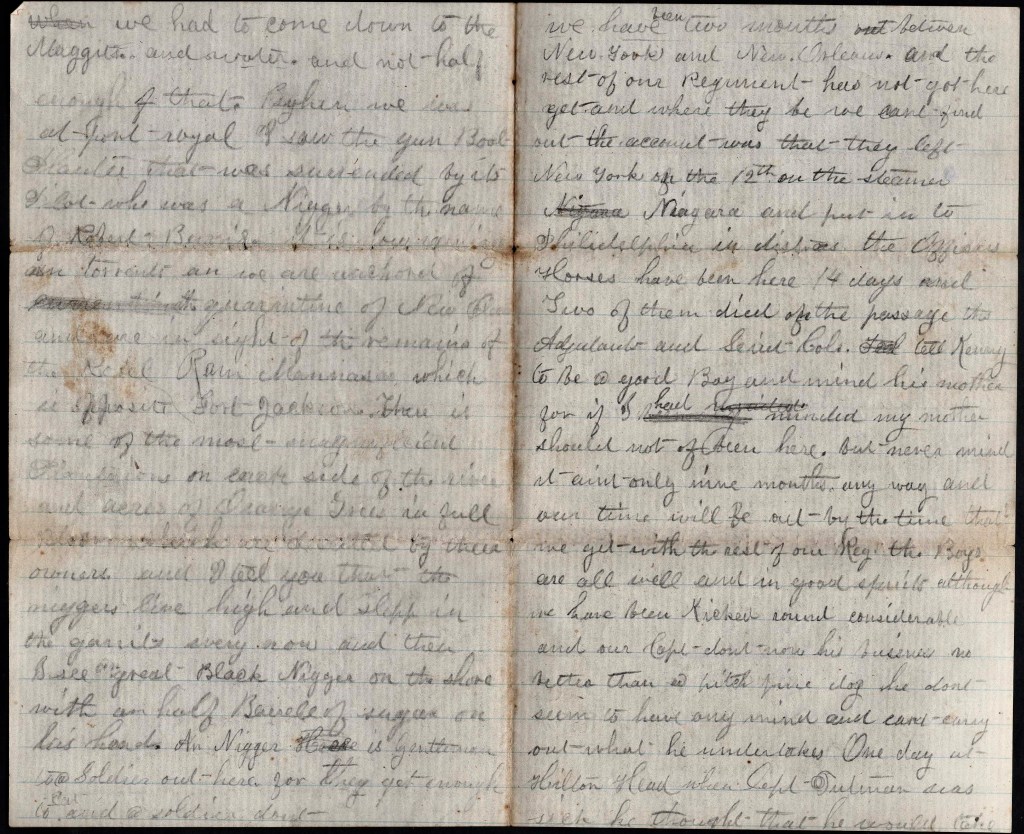 when we had to come down to the
Maggits. and water. and not half
enough of that. When we was
at Port royal I saw the gun Boat
Planter that was surrended by its
Pilot who was a Nigger by the name
of Robert
in torrents an we are anchord
quarantine of New
and are in sight of the remains of
the Rebel Ram Mannasas which
is opposite Fort Jackson. Ther is
some of the most magnificent
Plantations on each side of the river
and acres of Orange Trees in full
which are by there
owners and I tell you that the
niggers live high and slepp in
the garrits every now and then
I see a great Black Nigger on the shore
with an half Barrel of sugar on
his head. An Nigger Here is gentleman
to a Soldier out here for they get enough
to eat and a soldier dont
we have been two months out betwen
New York and New. Orleans. and the
rest of our Regiment has not got here
yet and where they be we cant find
out the account was that they left
New York of the 12th on the steamer
Nigara Niagara and put in to
Philidelphia in distres. the Officers
Horses have been here 14 days and
Two of them died on the passage the
Adjutants and Leiut Cols. tell Kenny
to Be a good Boy and mind his mother
for if I had minded my mother
should not of been here. but never mind
it aint only nine months. any way and
our time will Be out by the time that
we get with the rest of our Reg. the Boys
are all well and in good spirits although
we have been Kicked round considerable
and our Capt dont now his bisness no
better than a pitch pine dog he dont
seem to have any mind and cant carry
out what he undertakes One day at
Hilton Head when Capt was
sick he thought that he would take